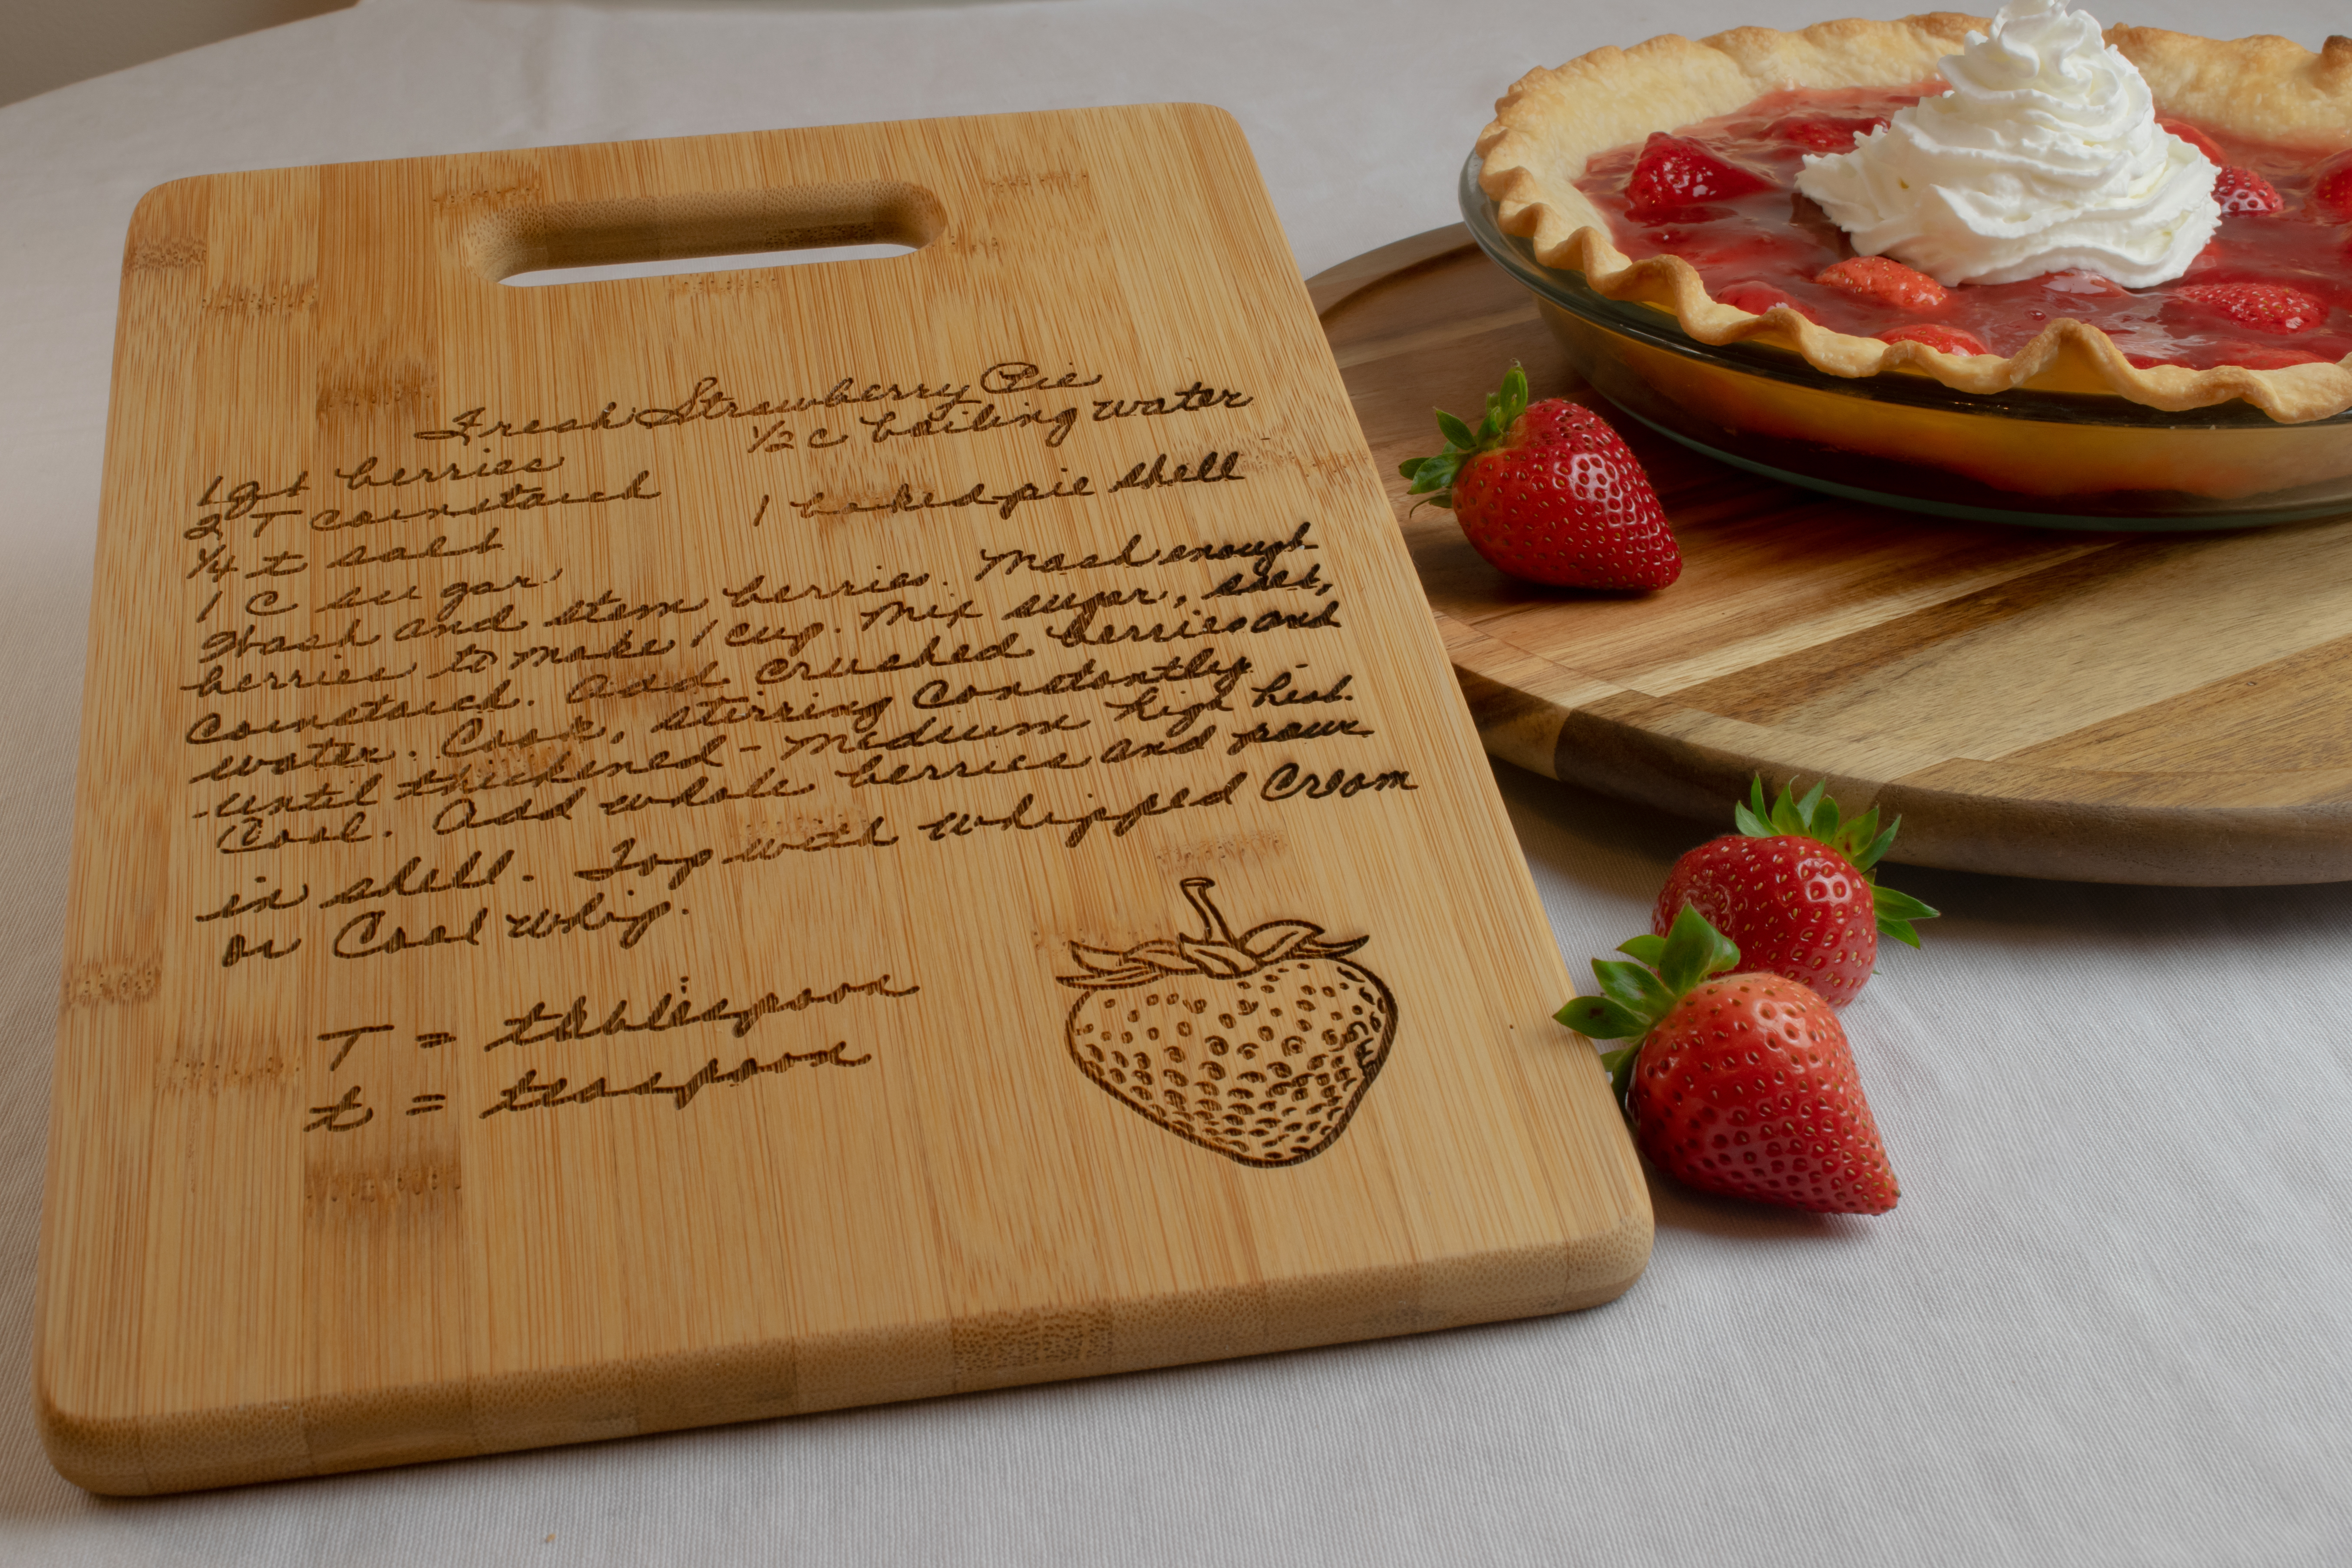 Fresh Strawberry Pie
1 qt berries
1/2 c boiling water
2 T cornstarch
1 baked pie shell
1/4 t salt
1 C sugar
Wash and stem berries. Mash enough
berries to make 1 cup. Mix sugar, salt,
cornstarch. Add crushed berries and
water. Cook, stirring constantly
until thickened - medium high heat.
Cool. Add whole berries and pour
in shell. Top with whipped cream
or Cool Whip.
T = tablespoon
t = teaspoon